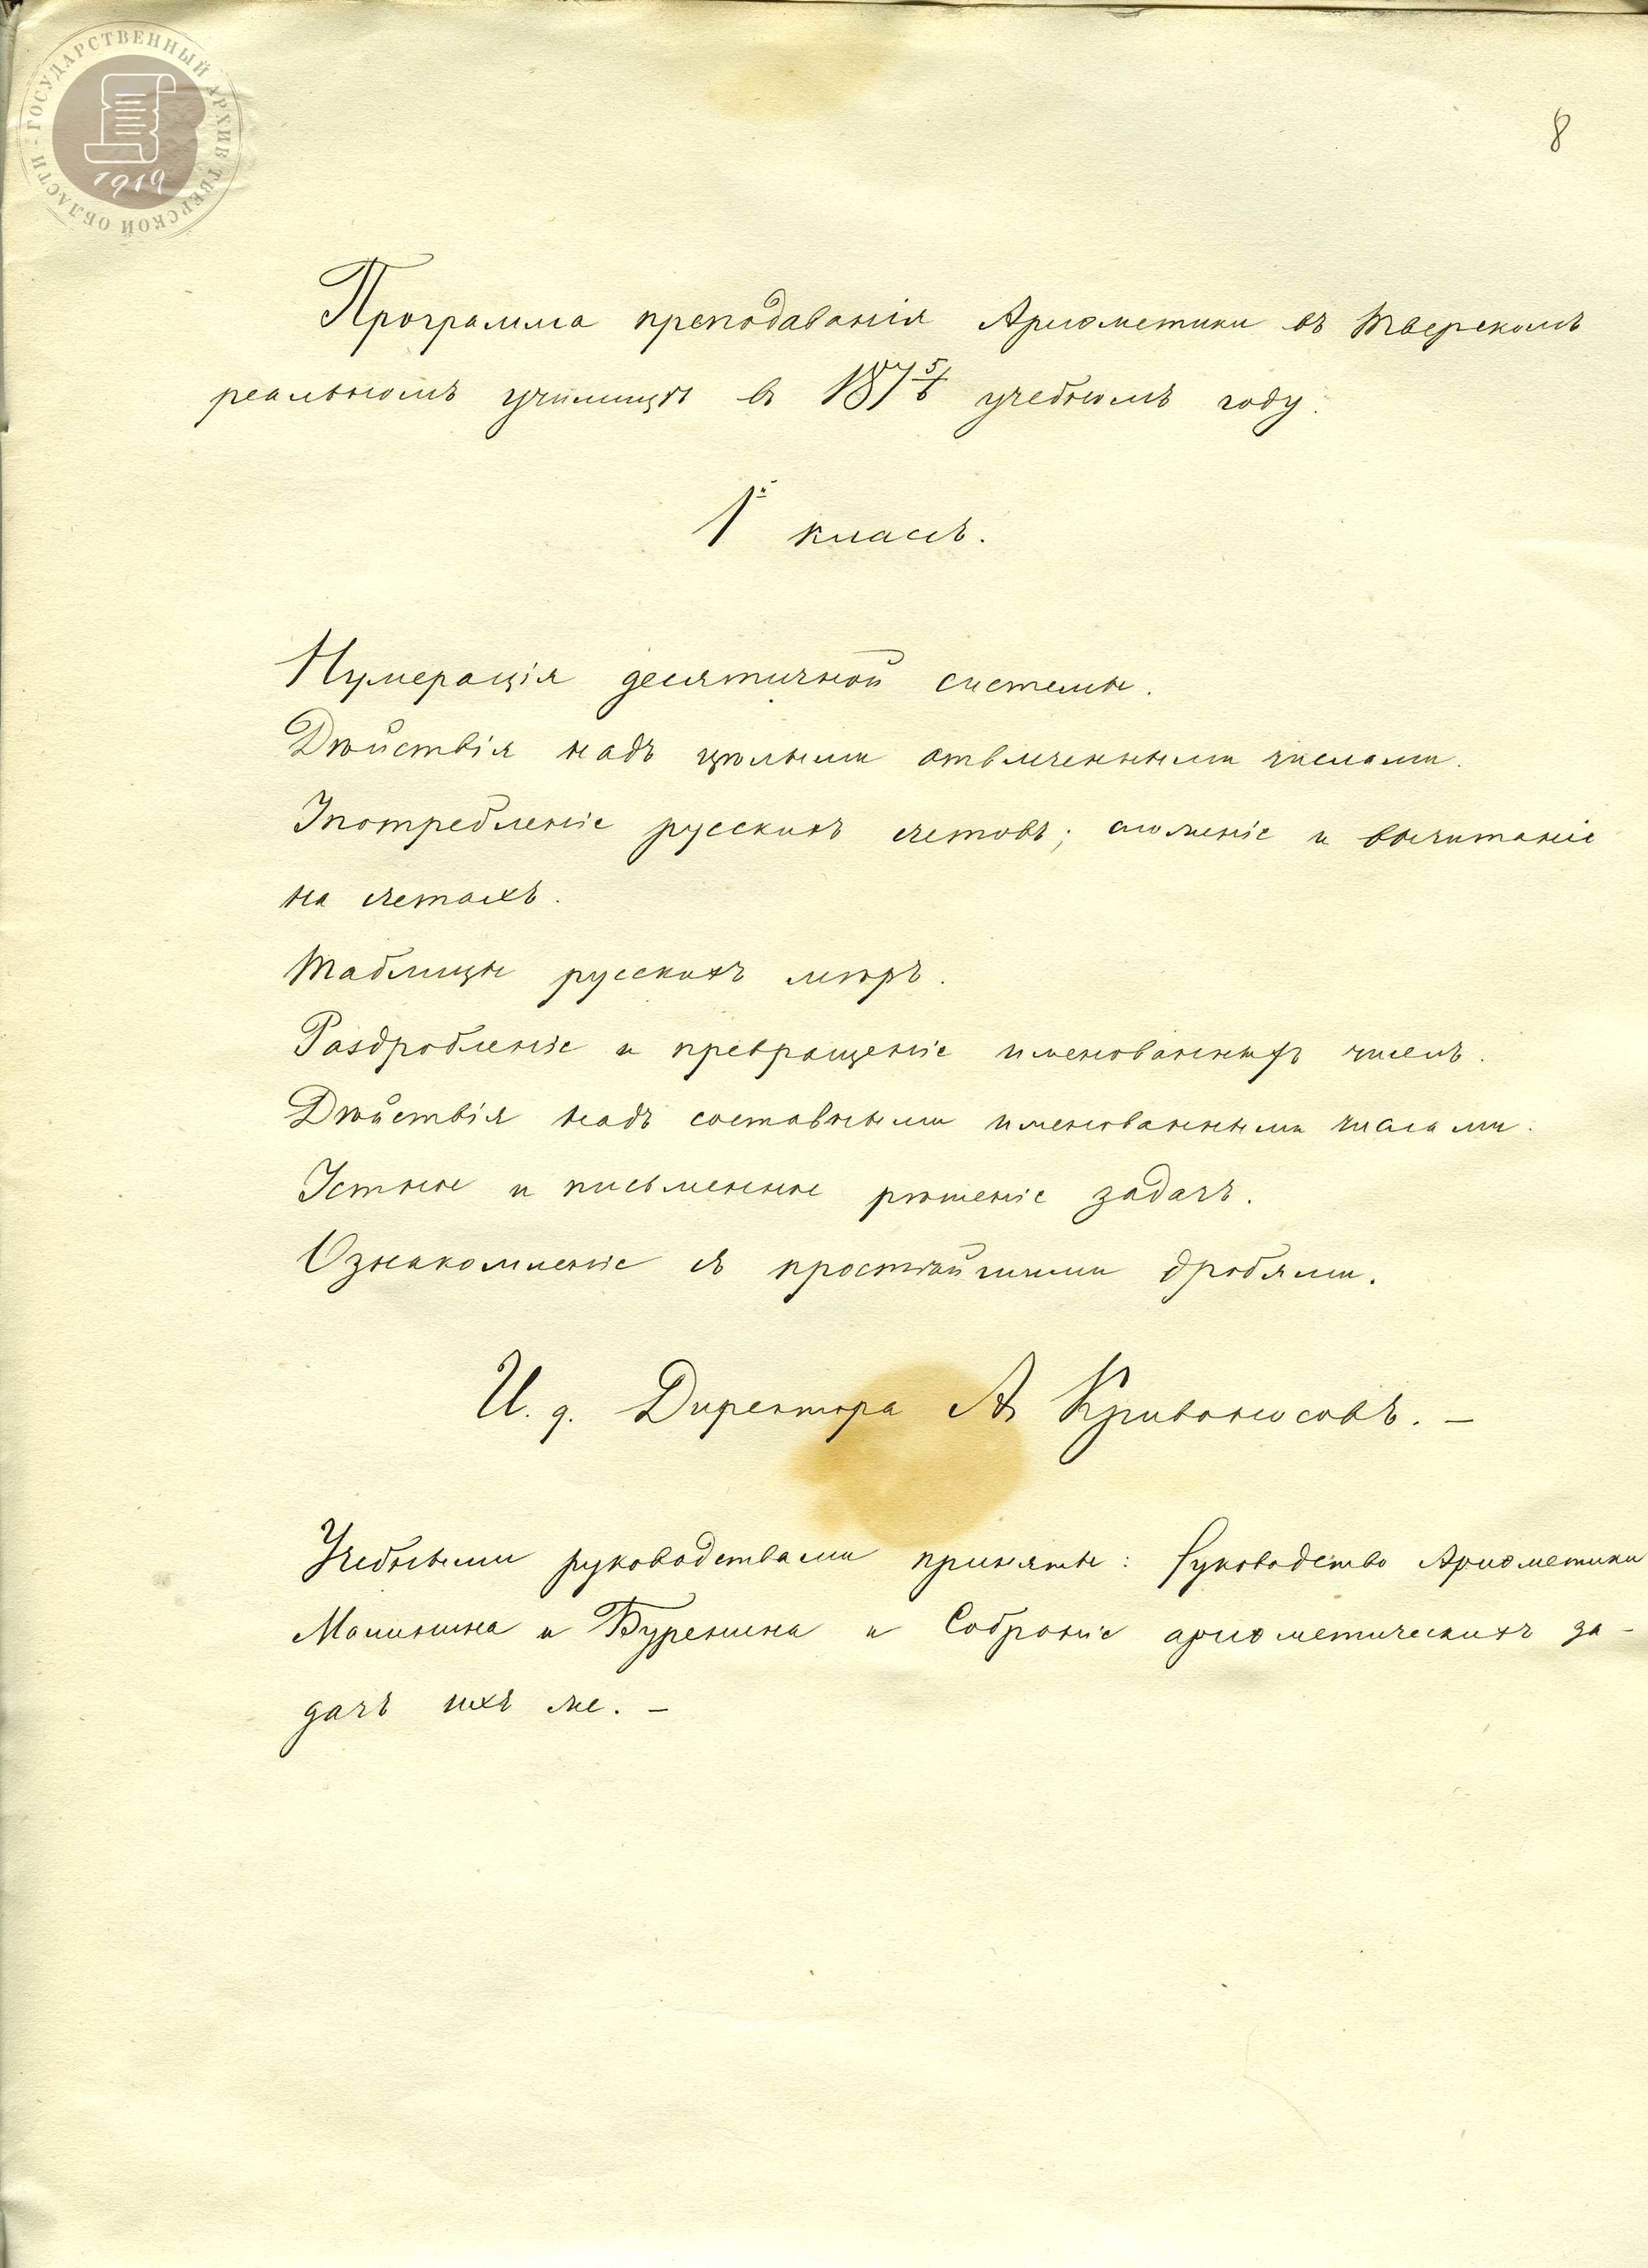 ГОСУДАРСТВЕННЫЙ АРХИВ ТВЕРСКОЙ ОБЛАСТИ
1919
8
Программа преподаванія Ариѳметики въ Тверскомъ
реальномъ училищѣ въ 187 5/6 учебномъ году.
1й классъ.
Нумерація десятичной системы.
Дѣйствія надъ цѣлыми отвлеченными числами.
Употребленіе русскихъ счетовъ; сложеніе и вычитаніе
на счетахъ.
Таблицы русскихъ мѣръ.
Раздробленіе и превращеніе именованныхъ чиселъ.
Дѣйствія надъ составными именованными числами.
Устное и письменное рѣшеніе задачъ.
Ознакомленіе съ простѣйшими дробями.
И. д. Директора А Кривоносовъ. —
Учебными руководствами приняты: Руководство Ариѳметики
Малинина и Буренина и Собраніе ариѳметическихъ за-
дачъ ихъ же. —